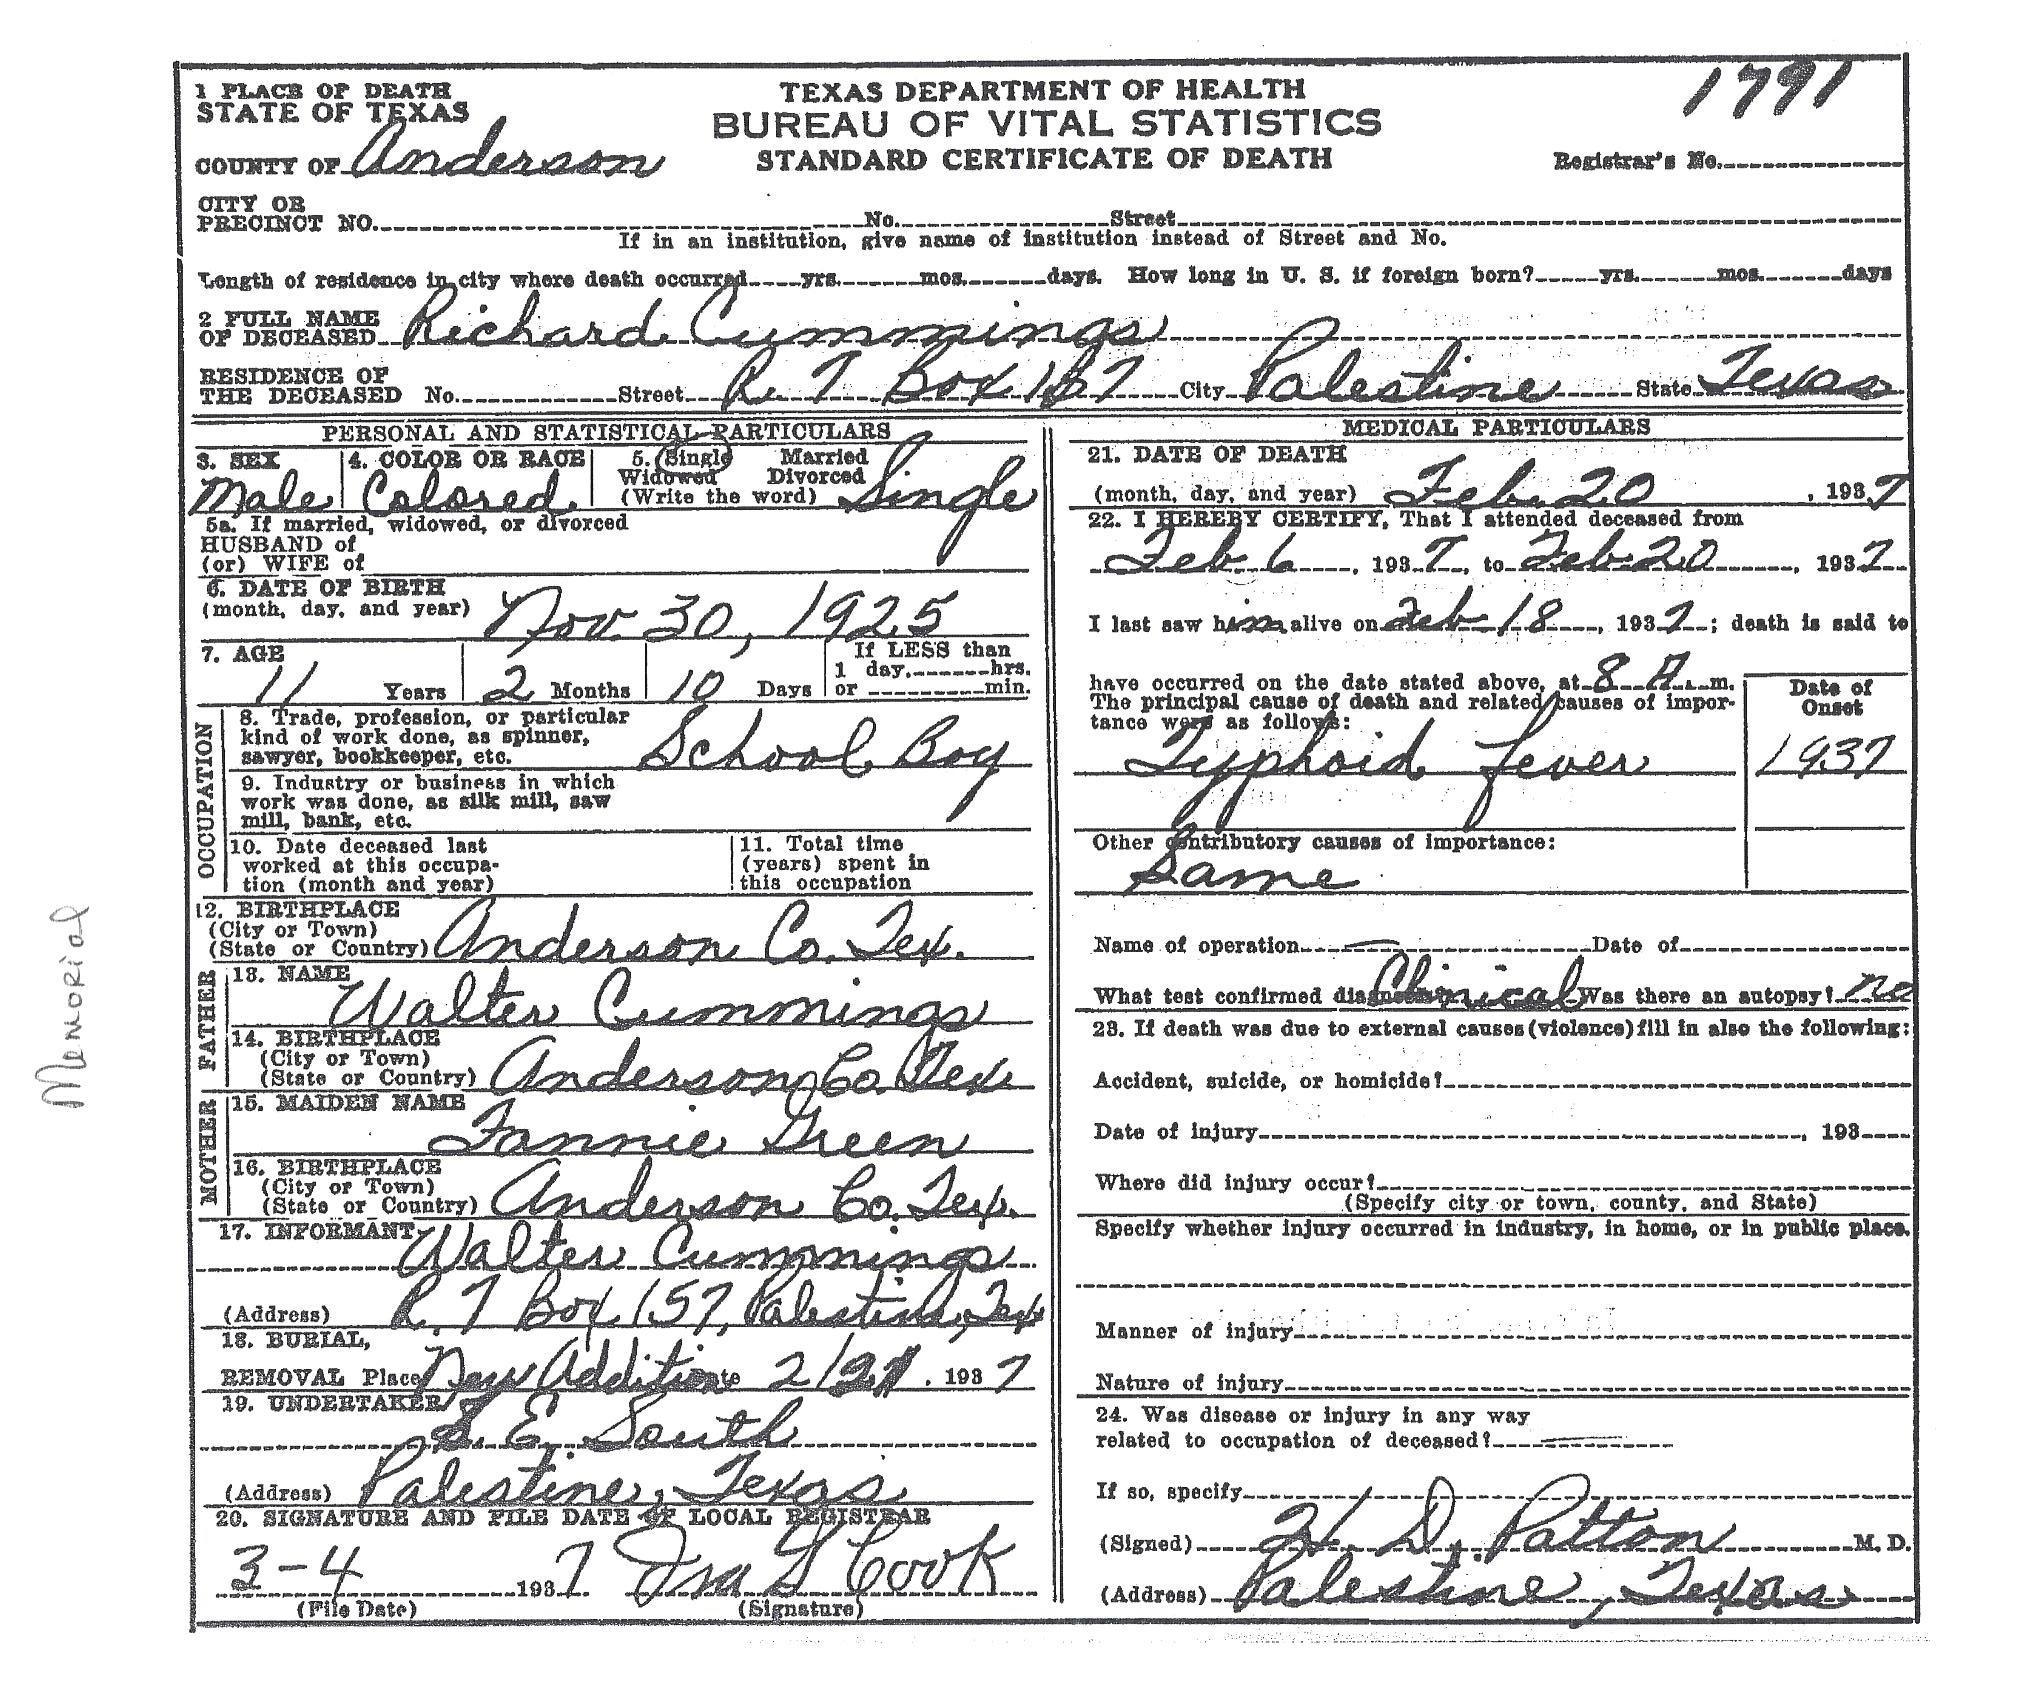 1791
1 PLACE OF DEATH
STATE OF TEXAS
COUNTY OF Anderson
TEXAS DEPARTMENT OF HEALTH
BUREAU OF VITAL STATISTICS
STANDARD CERTIFICATE OF DEATH
Registrar's No.
CITY OR
PRECINCT NO. No. Street
If in an institution, give name of institution instead of Street and No.
Length of residence in city where death occurred yrs. mos. days. How long in U. S. if foreign born? yrs. mos. days
2 FULL NAME
OF DECEASED Richard Cummings
RESIDENCE OF
THE DECEASED No. Street R. 7 Box 157 City Palestine State Texas
PERSONAL AND STATISTICAL PARTICULARS
3. SEX
Male
4. COLOR OR RACE
Colored
5. Single Married
Widowed Divorced
(Write the word) Single
5a. If married, widowed, or divorced
HUSBAND of
(or) WIFE of
6. DATE OF BIRTH
(month, day, and year) Nov. 30, 1925
7. AGE
11 Years 2 Months 10 Days
If LESS than
1 day, hrs.
or min.
OCCUPATION
8. Trade, profession, or particular
kind of work done, as spinner,
sawyer, bookkeeper, etc. School Boy
9. Industry or business in which
work was done, as silk mill, saw
mill, bank, etc.
10. Date deceased last
worked at this occupa-
tion (month and year)
11. Total time
(years) spent in
this occupation
12. BIRTHPLACE
(City or Town)
(State or Country) Anderson Co. Tex.
FATHER
13. NAME
Walter Cummings
14. BIRTHPLACE
(City or Town)
(State or Country) Anderson Co. Tex.
MOTHER
15. MAIDEN NAME
Fannie Green
16. BIRTHPLACE
(City or Town)
(State or Country) Anderson Co. Tex.
17. INFORMANT
Walter Cummings
(Address) R. 7 Box 157, Palestine, Tex
18. BURIAL,
REMOVAL Place New Addition Date 2/21, 1937
19. UNDERTAKER
S. E. South
(Address) Palestine, Texas
20. SIGNATURE AND FILE DATE OF LOCAL REGISTRAR
3-4 1937 Ira G Cook
(File Date) (Signature)
MEDICAL PARTICULARS
21. DATE OF DEATH
(month, day, and year) Feb. 20, 1937
22. I HEREBY CERTIFY, That I attended deceased from
Feb 6, 1937, to Feb 20, 1937
I last saw him alive on Feb 18, 1937; death is said to
have occurred on the date stated above, at 8 A. m.
The principal cause of death and related causes of impor-
tance were as follows:
Typhoid fever
Date of
Onset
1937
Other contributory causes of importance:
Same
Name of operation Date of
What test confirmed diagnosis? Clinical Was there an autopsy? no
23. If death was due to external causes (violence) fill in also the following:
Accident, suicide, or homicide?
Date of injury , 193
Where did injury occur?
(Specify city or town, county, and State)
Specify whether injury occurred in industry, in home, or in public place.
Manner of injury
Nature of injury
24. Was disease or injury in any way
related to occupation of deceased?
If so, specify
(Signed) H. D. Patton M. D.
(Address) Palestine, Texas
Memorial